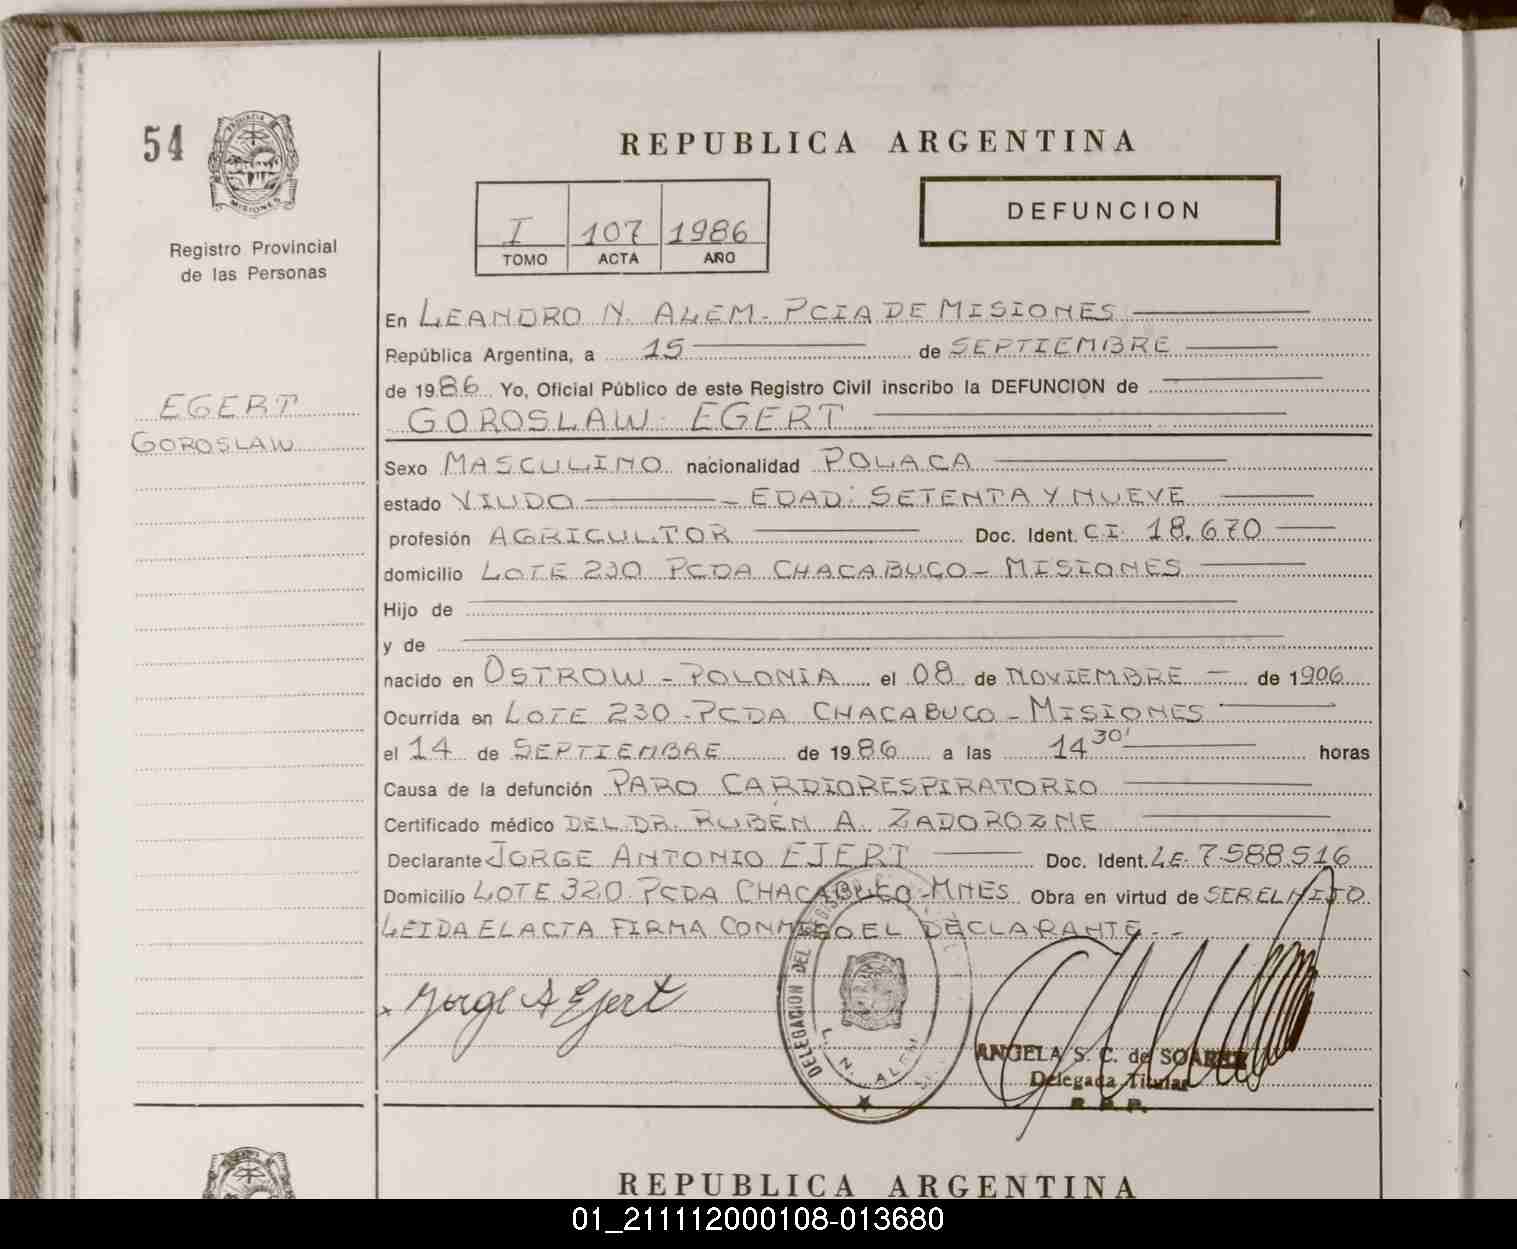 54
PROVINCIA DE
MISIONES
Registro Provincial
de las Personas
EGERT
GOROSLAW
REPUBLICA ARGENTINA
I 107 1986
TOMO ACTA AÑO
DEFUNCION
En LEANDRO N. ALEM - PCIA DE MISIONES
República Argentina, a 15 de SEPTIEMBRE
de 1986 Yo, Oficial Público de este Registro Civil inscribo la DEFUNCION de
GOROSLAW EGERT
Sexo MASCULINO nacionalidad POLACA
estado VIUDO - EDAD: SETENTA Y NUEVE
profesión AGRICULTOR Doc. Ident. C.I. 18.670
domicilio LOTE 230 PCDA CHACABUCO - MISIONES
Hijo de
y de
nacido en OSTROW - POLONIA el 08 de NOVIEMBRE - de 1906
Ocurrida en LOTE 230 - PCDA CHACABUCO - MISIONES
el 14 de SEPTIEMBRE de 1986 a las 14 30' horas
Causa de la defunción PARO CARDIORESPIRATORIO
Certificado médico DEL DR. RUBEN A. ZADOROZNE
Declarante JORGE ANTONIO EJERT Doc. Ident. L.E. 7.588.516
Domicilio LOTE 320 PCDA CHACABUCO - MNES Obra en virtud de SER EL HIJO
LEIDA EL ACTA FIRMA CONMIGO EL DECLARANTE - -
x Jorge A Ejert
DELEGACION DEL
L. N. ALEM
ANGELA S. C. de SOARES
Delegada Titular
R. P. P.
REPUBLICA ARGENTINA
01_211112000108-013680